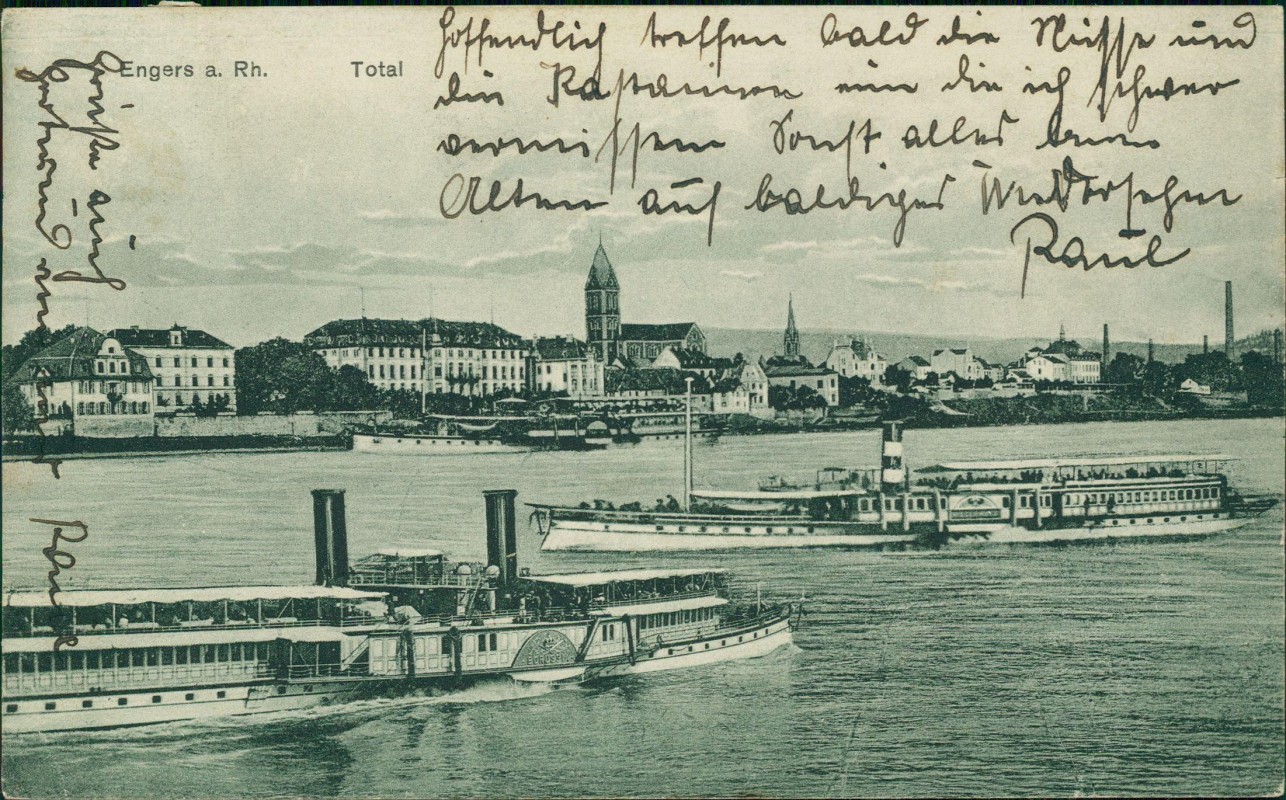 Engers a. Rh.
Total
Hoffendlich treffen bald die Nüsse und
die Kastanien ein die ich schwer
vermissen Sonst alles beim
Alten auf baldiges Wiedersehn
Paul
Grüße auch
BORUSSIA